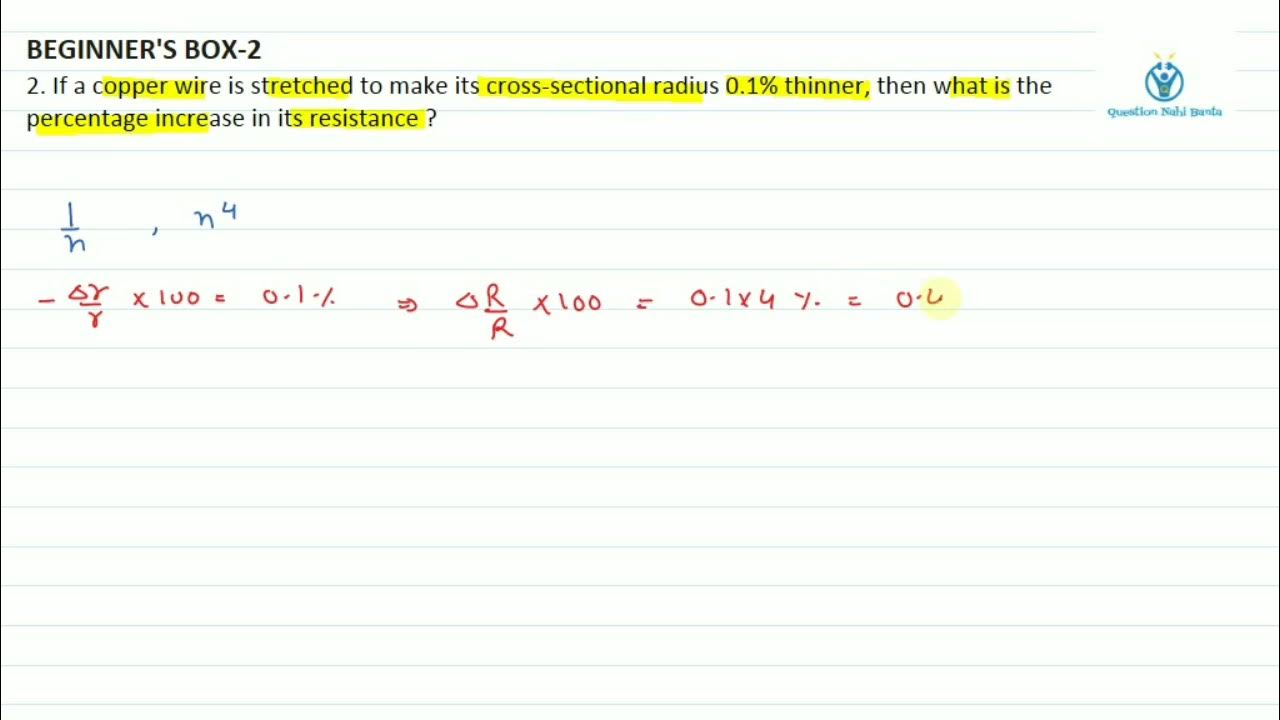 BEGINNER'S BOX-2
2. If a copper wire is stretched to make its cross-sectional radius 0.1% thinner, then what is the
percentage increase in its resistance ?
Question Nahi Banta
1/n , n⁴
- Δr/r × 100 = 0.1 % ⇒ ΔR/R × 100 = 0.1 × 4 % = 0.4